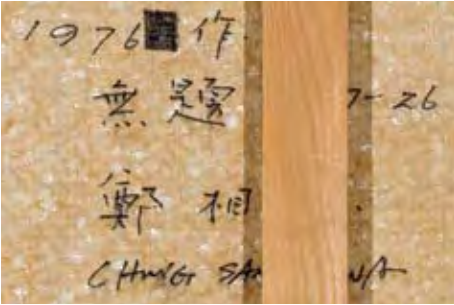 1976 作
無題 7-26
鄭相
CHUNG